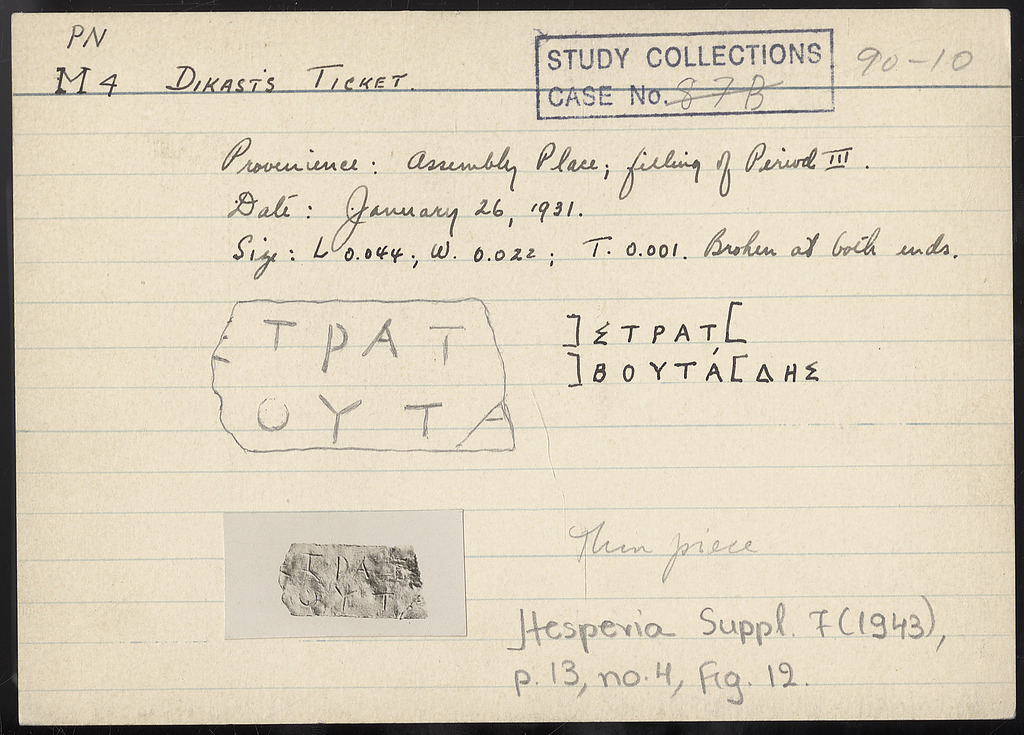 PN
M 4 DIKAST'S TICKET.
STUDY COLLECTIONS
CASE No. 87B
90-10
Provenience: Assembly Place; filling of Period III.
Date: January 26, 1931.
Size: L 0.044; W. 0.022; T. 0.001. Broken at both ends.
ΣΤΡΑΤ
ΟΥΤΑ
]ΣΤΡΑΤ[
]ΒΟΥΤΑ[ΔΗΣ
Thin piece
ΤΡΑΤ
ΟΥΤ
Hesperia Suppl. 7 (1943),
p. 13, no. 4, Fig. 12.